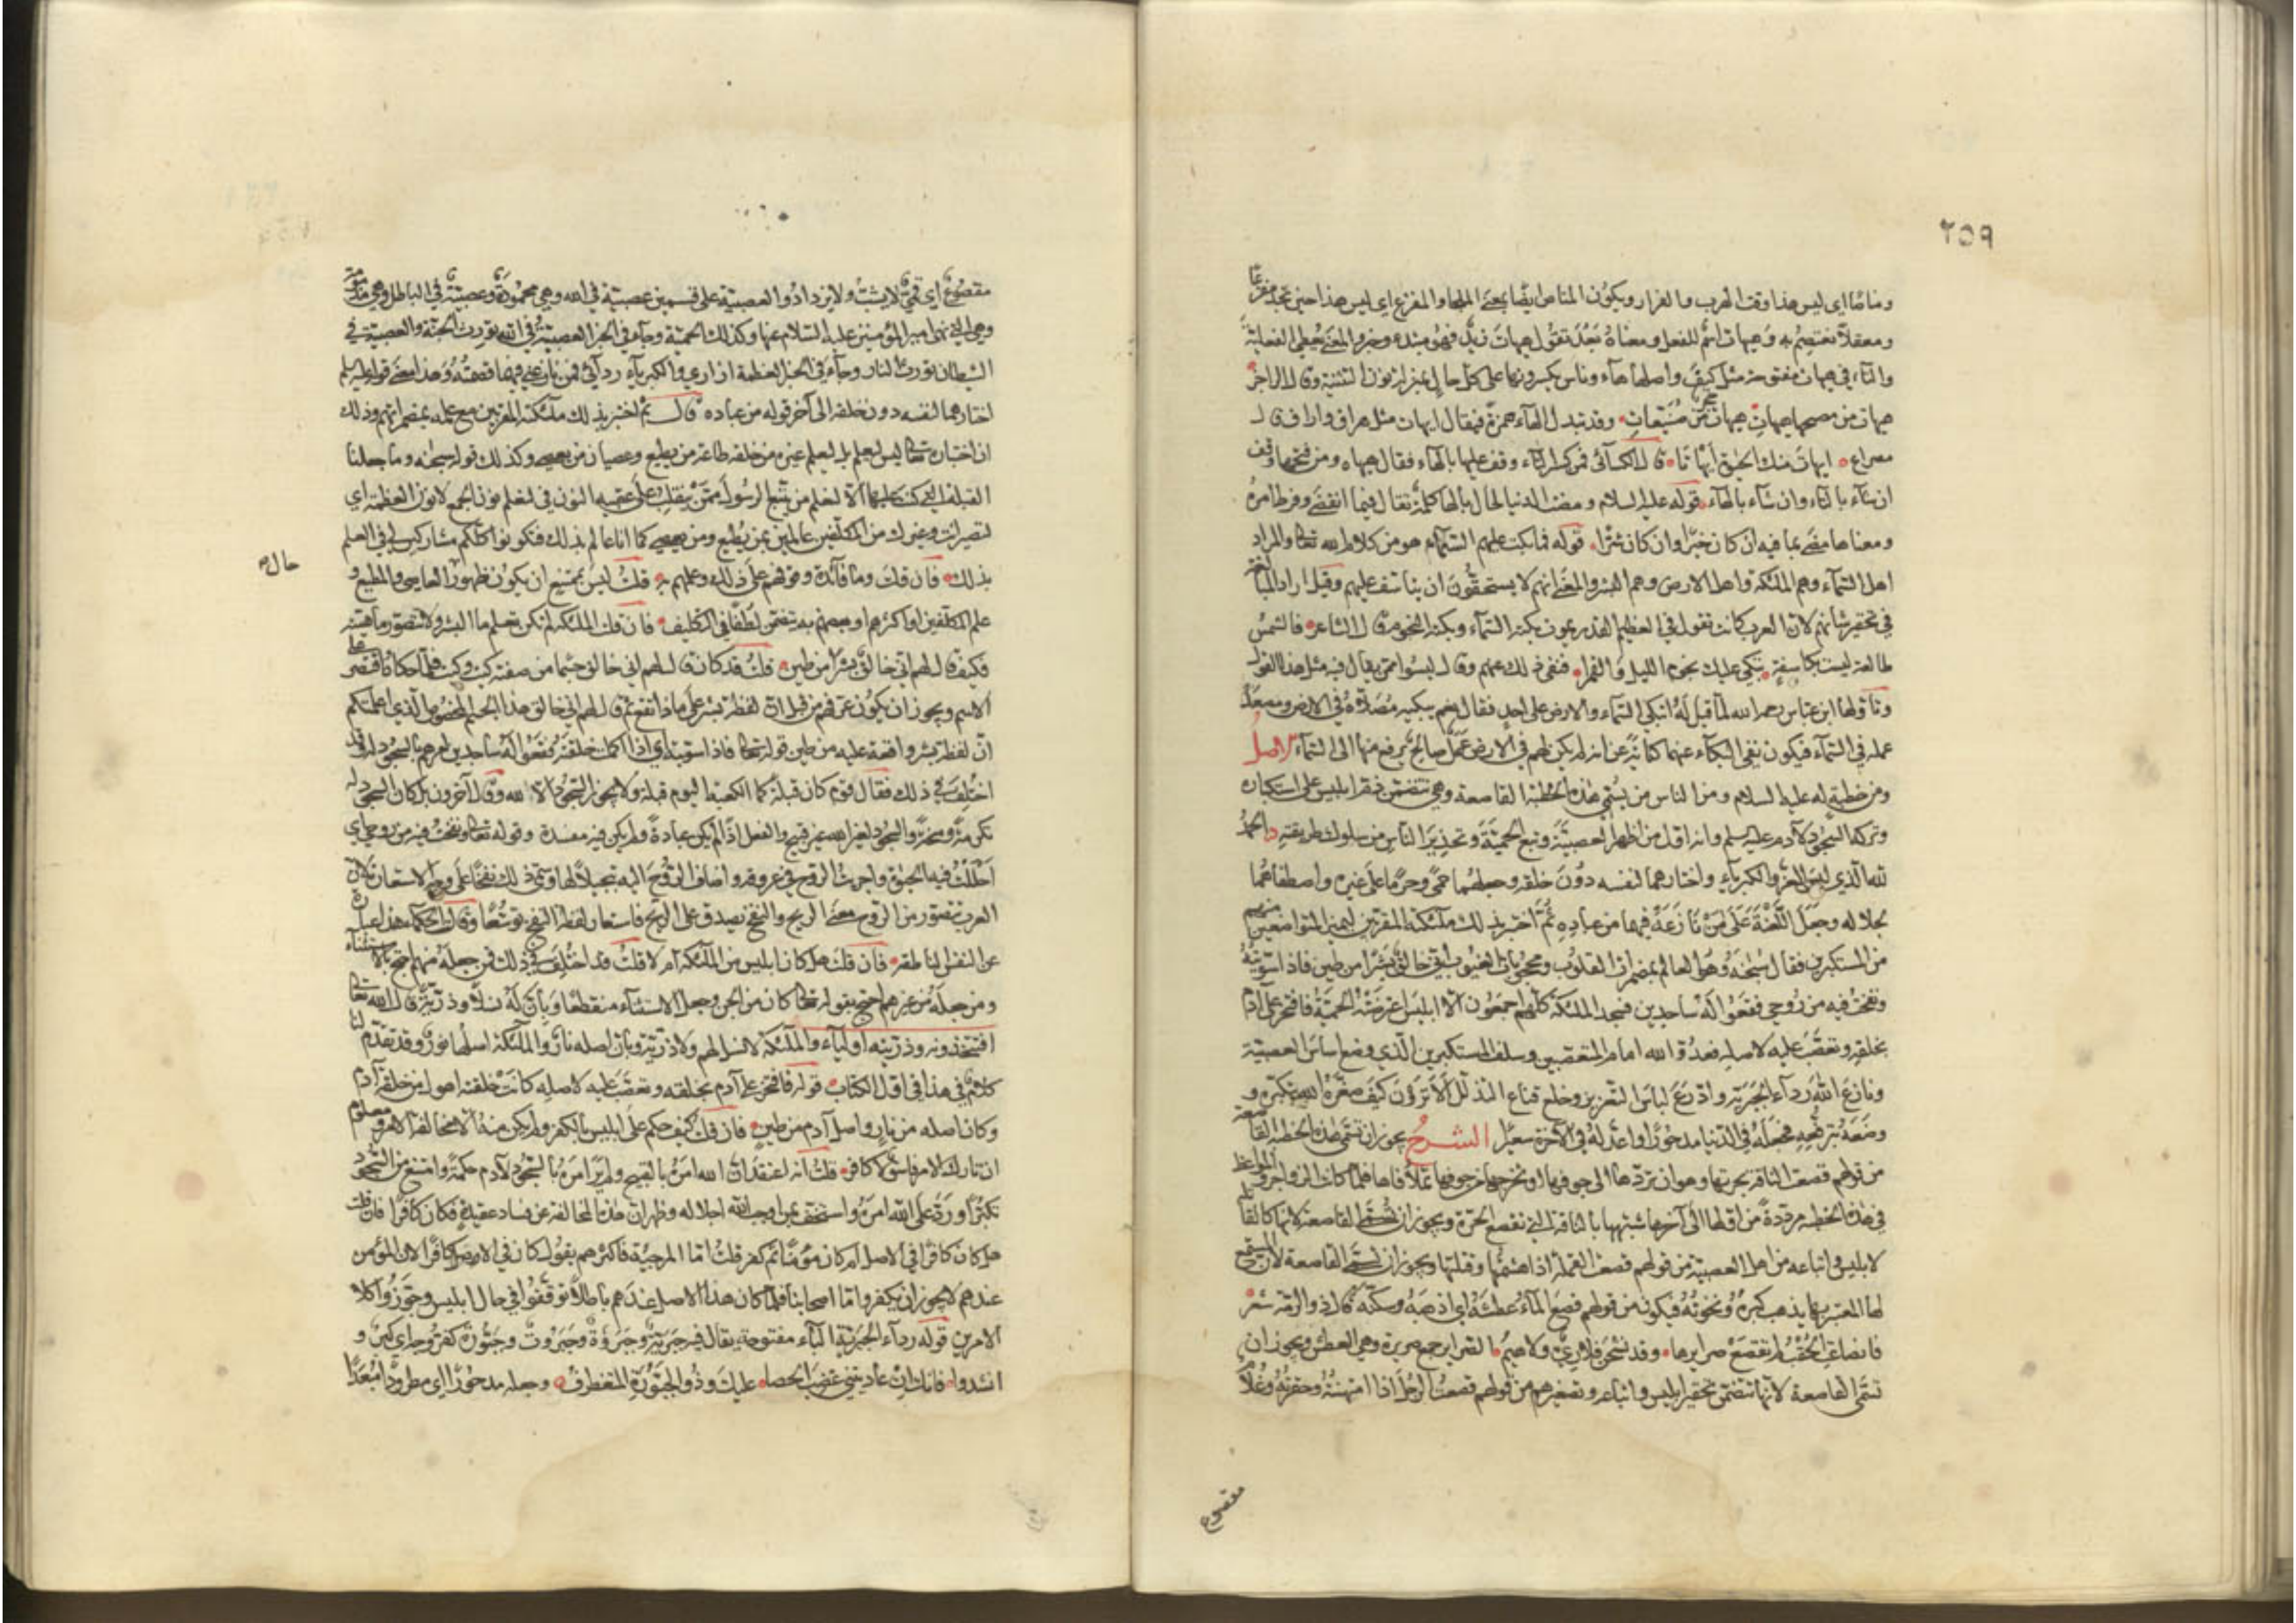 ٢٥٩
ومناصًا اى ليس هذا وقت الهرب والفرار ويكون المناص ايضًا بمعنى الملجاء والمفزع اى ليس هذا حين تجد مفزعًا
ومعقلًا تعتصم به وهيهات اسم للفعل ومعناه بَعُدَ تقول هيهات زيد فهو مبتدء وخبر والمعنى يعطى الفعلية
والتاء في هيهات مفتوحة مثل كيف واصلها هاء وناس يكسرونها على كل حال بمنزلة نون التثنية وقال الراجز
هيهات من مصبحها هيهات هيهات حجر من صُنَيْبعات وقد تبدل الهاء همزة فيقال ايهات مثل هراق واراق قال
مصراع ايهات منك الحيوة ايهاتا قال الكسائى فمن كسر التاء وقف عليها بالهاء فقال هيهاه ومن فتحها وقف
ان شاء بالتاء وان شاء بالهاء قوله عليه السلام ومضت الدنيا لحال بالها كلمة تقال فيما انقضى وفرط امره
ومعناها مضى بما فيه ان كان خيرًا وان كان شرًا قوله فما بكت عليهم السماء هو من كلام الله تعالى والمراد
اهل السماء وهم الملئكة واهل الارض وهم البشر والمعنى انهم لا يستحقون ان يتاسف عليهم وقيل اراد المبالغة
في تحقير شانهم لان العرب كانت تقول في العظيم القدر يموت بكته السماء وبكته النجوم قال الشاعر فالشمس
طالعة ليست بكاسفة تبكى عليك نجوم الليل والقمرا فنفى ذلك عنهم وقال ليسوا ممن يقال فيه مثل هذا القول
وتاولها ابن عباس رحمه الله لما قيل له اتبكى السماء والارض على احد فقال نعم يبكيه مصلاه في الارض ومصعد
عمله في السماء فيكون نفى البكاء عنهما كناية عن انه لم يكن لهم في الارض عمل صالح يرفع منها الى السماء الاصل
ومن خطبة له عليه السلام ومن الناس من يسمى هذه الخطبة القاصعة وهى تتضمن ذم ابليس على استكباره
وتركه السجود لآدم عليه السلم وانه اول من اظهر العصبية وتبع الحمية وتحذير الناس من سلوك طريقته الحمد
لله الذي لبس العز والكبرياء واختارهما لنفسه دون خلقه وجعلهما حمى وحرمًا على غيره واصطفاهما
بجلاله وجعل اللعنة على من نازعه فيهما من عباده ثم اختبر بذلك ملئكته المقربين ليميز المتواضعين منهم
من المستكبرين فقال سبحنه وهو العالم بمضمرات القلوب ومحجوبات الغيوب انى خالق بشرًا من طين فاذا سويته
ونفخت فيه من روحي فقعوا له ساجدين فسجد الملئكة كلهم اجمعون الا ابليس اعترضته الحمية فافتخر على آدم
بخلقه وتعصب عليه لاصله فعدو الله امام المتعصبين وسلف المستكبرين الذي وضع اساس العصبية
ونازع الله رداء الجبرية وادرع لباس التعزز وخلع قناع التذلل الا ترون كيف صغره الله بتكبره و
وضعه بترفعه فجعله في الدنيا مدحورًا واعد له في الآخرة سعيرًا الشرح يجوز ان تسمى هذه الخطبة القاصعة
من قولهم قصعت الناقة بجرتها وهو ان تردها الى جوفها او تخرجها من جوفها فتملأ فاها فلما كانت الزواجر والمواعظ
في هذه الخطبة مرددة من اولها الى آخرها شبهها بالناقة التى تقصع الجرة ويجوز ان تسمى القاصعة لانها كالقاتلة
لابليس واتباعه من اهل العصبية من قولهم قصعت القملة اذا هشمتها وقتلتها ويجوز ان تسمى القاصعة لان المستمع
لها المعتبر بها يذهب كبره ونخوته فيكون من قولهم قصع الماء عطشه اى اذهبه وسكنه قال ذو الرمة شعر
فانصاعت الحقب لم تقصع صرايرها وقد نشحن فلا رى ولا هيم الصراير جمع صريرة وهى العطش ويجوز ان
تسمى القاصعة لانها تتضمن تحقير ابليس واتباعه وتصغيرهم من قولهم قصعت الرجل اذا امتهنته وحقرته وغلام
مقصوع
مقصوع اى قمئ لا يشب ولا يزداد والعصبية على قسمين عصبية في الله وهى محمودة وعصبية في الباطل وهى مذمومة
وهى التى نهى امير المؤمنين عليه السلام عنها وكذلك الحمية وجاء في الخبر العصبية في الله تورث الجنة والعصبية في
الشيطان تورث النار وجاء في الخبر العظمة ازارى والكبرياء ردائى فمن نازعنى فيهما قصمته وهذا معنى قوله عليه السلم
اختارهما لنفسه دون خلقه الى آخر قوله من عباده قال ثم اختبر بذلك ملئكته المقربين مع علمه بمضمراتهم وذلك
ان اختباره تعالى ليس ليعلم بل ليعلم غيره من خلقه طاعة من يطيع وعصيان من يعصى وكذلك قوله سبحنه وما جعلنا
القبلة التى كنت عليها الا لنعلم من يتبع الرسول ممن ينقلب على عقبيه النون في لنعلم نون الجمع لا نون العظمة اى
لتصير انت وغيرك من المكلفين عالمين بمن يطيع ومن يعصى كما انا عالم بذلك فتكونوا كلكم مشاركين لى في العلم
بذلك فان قلت وما فائدة وقوفهم على ذلك وعلمهم به قلت ليس بممتنع ان يكون ظهور حال العاصى والمطيع و
علم المكلفين او اكثرهم او بعضهم به يتضمن لطفًا في التكليف فان قلت ان الملئكة لم تكن تعلم ما البشر ولا تتصور ماهيته
فكيف قال لهم انى خالق بشرًا من طين قلت قد كان قال لهم انى خالق جسمًا من صفته كيت وكيت فلما حكاه اقتصر على
الاسم ويجوز ان يكون عرفهم من قبل ان لفظة بشر على ماذا تقع ثم قال لهم انى خالق هذا الجسم المخصوص الذي اعلمتكم
ان لفظة بشر واقعة عليه من طين قوله تعالى فاذا سويته اى اذا اكملت خلقه فقعوا له ساجدين امرهم بالسجود له وقد
اختلف في ذلك فقال قوم كان قبلة كما الكعبة اليوم قبلة ولا يجوز السجود الا لله وقال آخرون بل كان السجود له
تكرمة ومحنة والسجود لغير الله غير قبيح في العقل اذا لم يكن عبادة ولم يكن فيه مفسدة وقوله تعالى ونفخت فيه من روحى اى
احللت فيه الحيوة واجريت الروح في عروقه واضاف الروح اليه تبجيلًا لها وسمى ذلك نفخًا على وجه الاستعارة لان
العرب تتصور من الروح معنى الريح والنفخ يصدق على الريح فاستعار لفظة النفخ توسعًا وقالت الحكماء هذا عبارة
عن النفس الناطقة فان قلت هل كان ابليس من الملئكة ام لا قلت قد اختلف في ذلك فمن جعله منهم احتج بالاستثناء
ومن جعله من غيرهم احتج بقوله تعالى كان من الجن وجعل الاستثناء منقطعًا وبان له نسلًا وذرية قال الله تعالى
افتتخذونه وذريته اولياء والملئكة لا نسل لهم ولا ذرية وبان اصله نار والملئكة اصلها نور وقد تقدم لنا
كلام في هذا في اول الكتاب قوله فافتخر على آدم بخلقه وتعصب عليه لاصله كانت خلقته اهول من خلقة آدم
وكان اصله من نار واصل آدم من طين فان قلت كيف حكم على ابليس بالكفر ولم يكن منه الا مخالفة الامر ومعلوم
ان تارك الامر فاسق لا كافر قلت انه اعتقد ان الله امره بالقبيح ولم ير امره بالسجود لآدم حكمة وامتنع من السجود
تكبرًا ورد على الله امره واستخف بمن اوجب الله اجلاله وظهر ان هذه المخالفة عن فساد عقيدة فكان كافرًا فان قلت
هل كان كافرًا في الاصل ام كان مؤمنًا ثم كفر قلت اما المرجية فاكثرهم يقول كان في الاصل كافرًا لان المؤمن
عندهم لا يجوز ان يكفر واما اصحابنا فلما كان هذا الاصل عندهم باطلًا توقفوا في حال ابليس وجوزوا كلا
الامرين قوله رداء الجبرية الباء مفتوحة يقال فيه جبرية وجبروة وجبروت وجبورة كفروجة اى كبر و
انشدوا فانك ان عاديتنى غضب الحصا عليك وذو الجبورة المتغطرف وجعله مدحورًا اى مطرودًا مبعدًا
حال